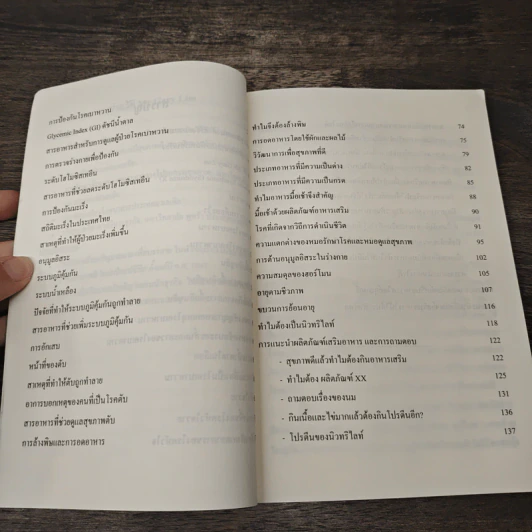 การป้องกันโรคเบาหวาน
Glycemic Index (GI) ดัชนีน้ำตาล
สารอาหารสำหรับการดูแลผู้ป่วยโรคเบาหวาน
การตรวจร่างกายเพื่อป้องกัน
ระดับโฮโมซิสเทอีน
สารอาหารที่ช่วยลดระดับโฮโมซิสเทอีน
การป้องกันมะเร็ง
สถิติมะเร็งในประเทศไทย
สาเหตุที่ทำให้ผู้ป่วยมะเร็งเพิ่มขึ้น
อนุมูลอิสระ
ระบบภูมิคุ้มกัน
ระบบน้ำเหลือง
ปัจจัยที่ทำให้ระบบภูมิคุ้มกันถูกทำลาย
สารอาหารที่ช่วยเพิ่มระบบภูมิคุ้มกัน
การอักเสบ
หน้าที่ของตับ
สาเหตุที่ทำให้ตับถูกทำลาย
อาการบอกเหตุของคนที่เป็นโรคตับ
สารอาหารที่ช่วยดูแลสุขภาพตับ
การล้างพิษและการอดอาหาร
ทำไมจึงต้องล้างพิษ 74
การอดอาหารโดยใช้ผักและผลไม้ 75
วิวัฒนาการเพื่อสุขภาพที่ดี 79
ประเภทอาหารที่มีความเป็นด่าง 82
ประเภทอาหารที่มีความเป็นกรด 85
ทำไมอาหารมื้อเช้าจึงสำคัญ 88
มื้อเช้าด้วยผลิตภัณฑ์อาหารเสริม 90
โรคที่เกิดจากวิถีการดำเนินชีวิต 91
ความแตกต่างของหมอรักษาโรคและหมอดูแลสุขภาพ 95
การต้านอนุมูลอิสระในร่างกาย 102
ความสมดุลของฮอร์โมน 105
อายุตามชีวภาพ 107
ขบวนการย้อนอายุ
ทำไมต้องเป็นนิวทริไลท์ 118
การแนะนำผลิตภัณฑ์เสริมอาหาร และการถามตอบ 122
- สุขภาพดีแล้วทำไมต้องกินอาหารเสริม 122
- ทำไมต้อง ผลิตภัณฑ์ XX 125
- ถามตอบเรื่องของนม 131
- กินเนื้อและไข่มากแล้วต้องกินโปรตีนอีก? 136
- โปรตีนของนิวทริไลท์ 137